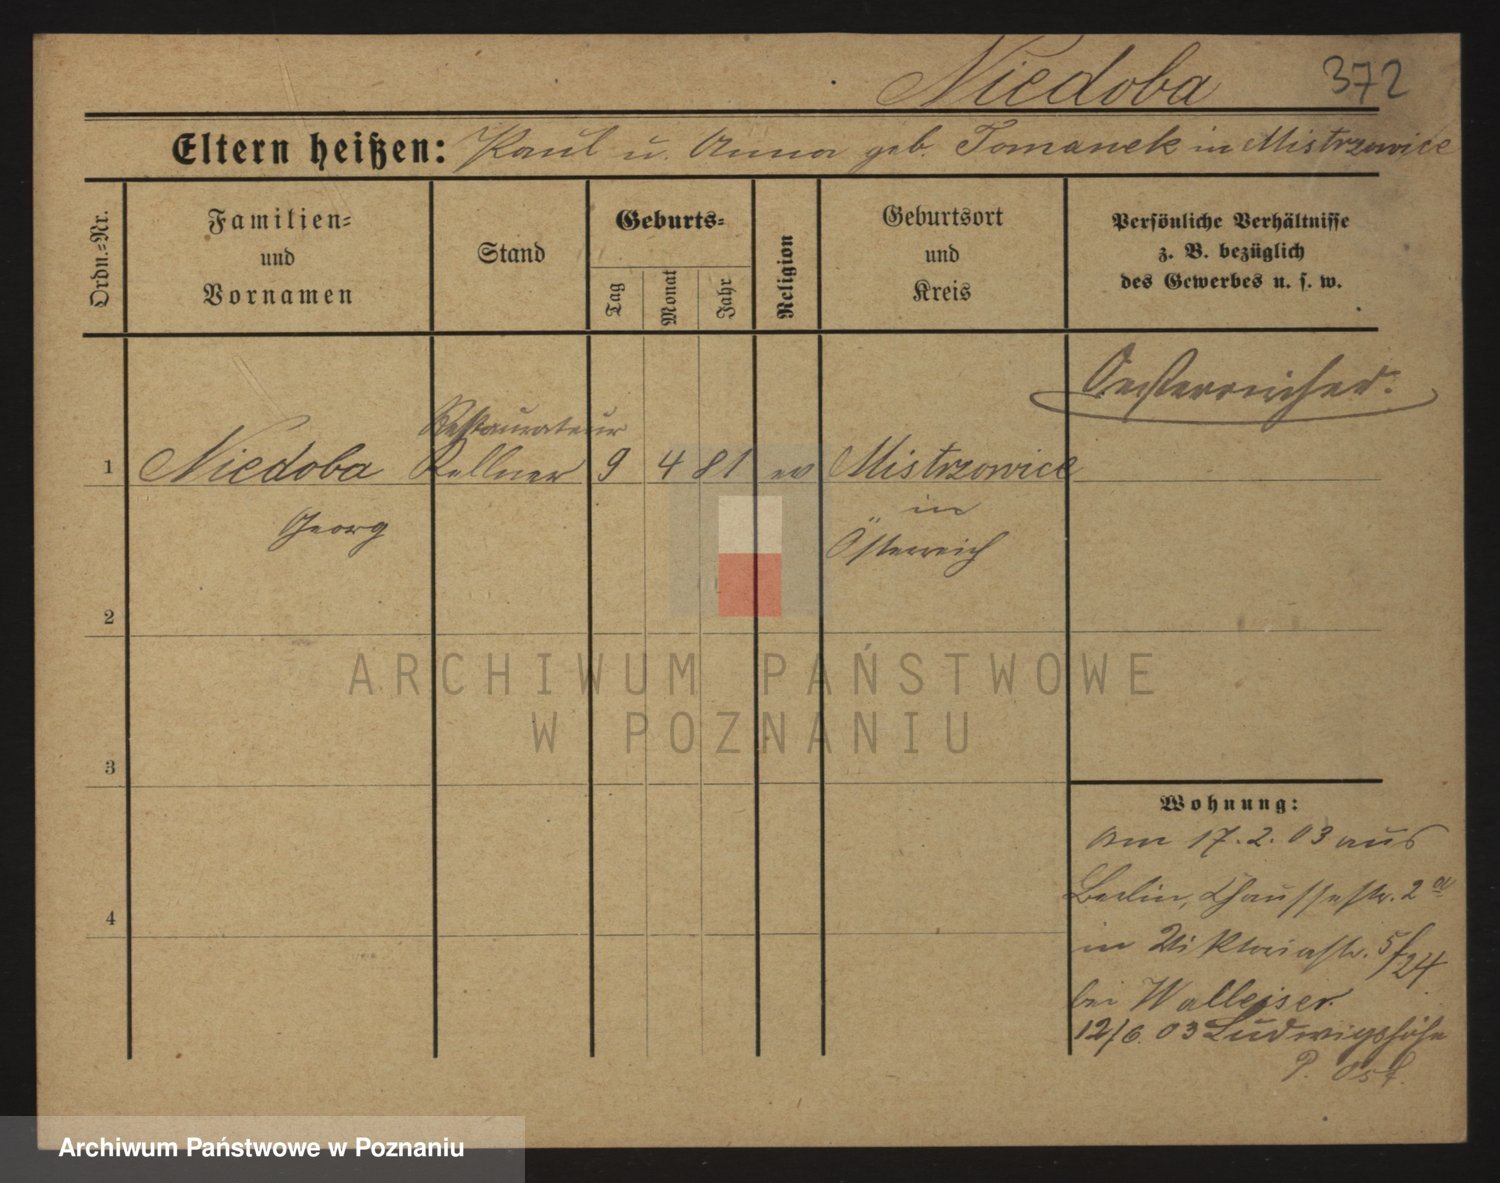 Niedoba 372
Eltern heißen: Paul u. Anna geb. Tomanek in Mistrzowice
Ordn.-Nr.
Familien-
und
Vornamen
Stand
Geburts-
Tag
Monat
Jahr
Religion
Geburtsort
und
Kreis
Persönliche Verhältnisse
z. B. bezüglich
des Gewerbes u. s. w.
Oesterreicher.
Restaurateur
1 Niedoba Kellner 9 4 81 ev Mistrzowice
Georg
in
Österreich
2
3
4
ARCHIWUM PAŃSTWOWE
W POZNANIU
Wohnung:
Am 17.2.03 aus
Berlin, Chausseestr. 2a
in Viktoriastr. 5/24
bei Walleiser.
12/6.03 Ludwigshöhe
P. Ost.
Archiwum Państwowe w Poznaniu